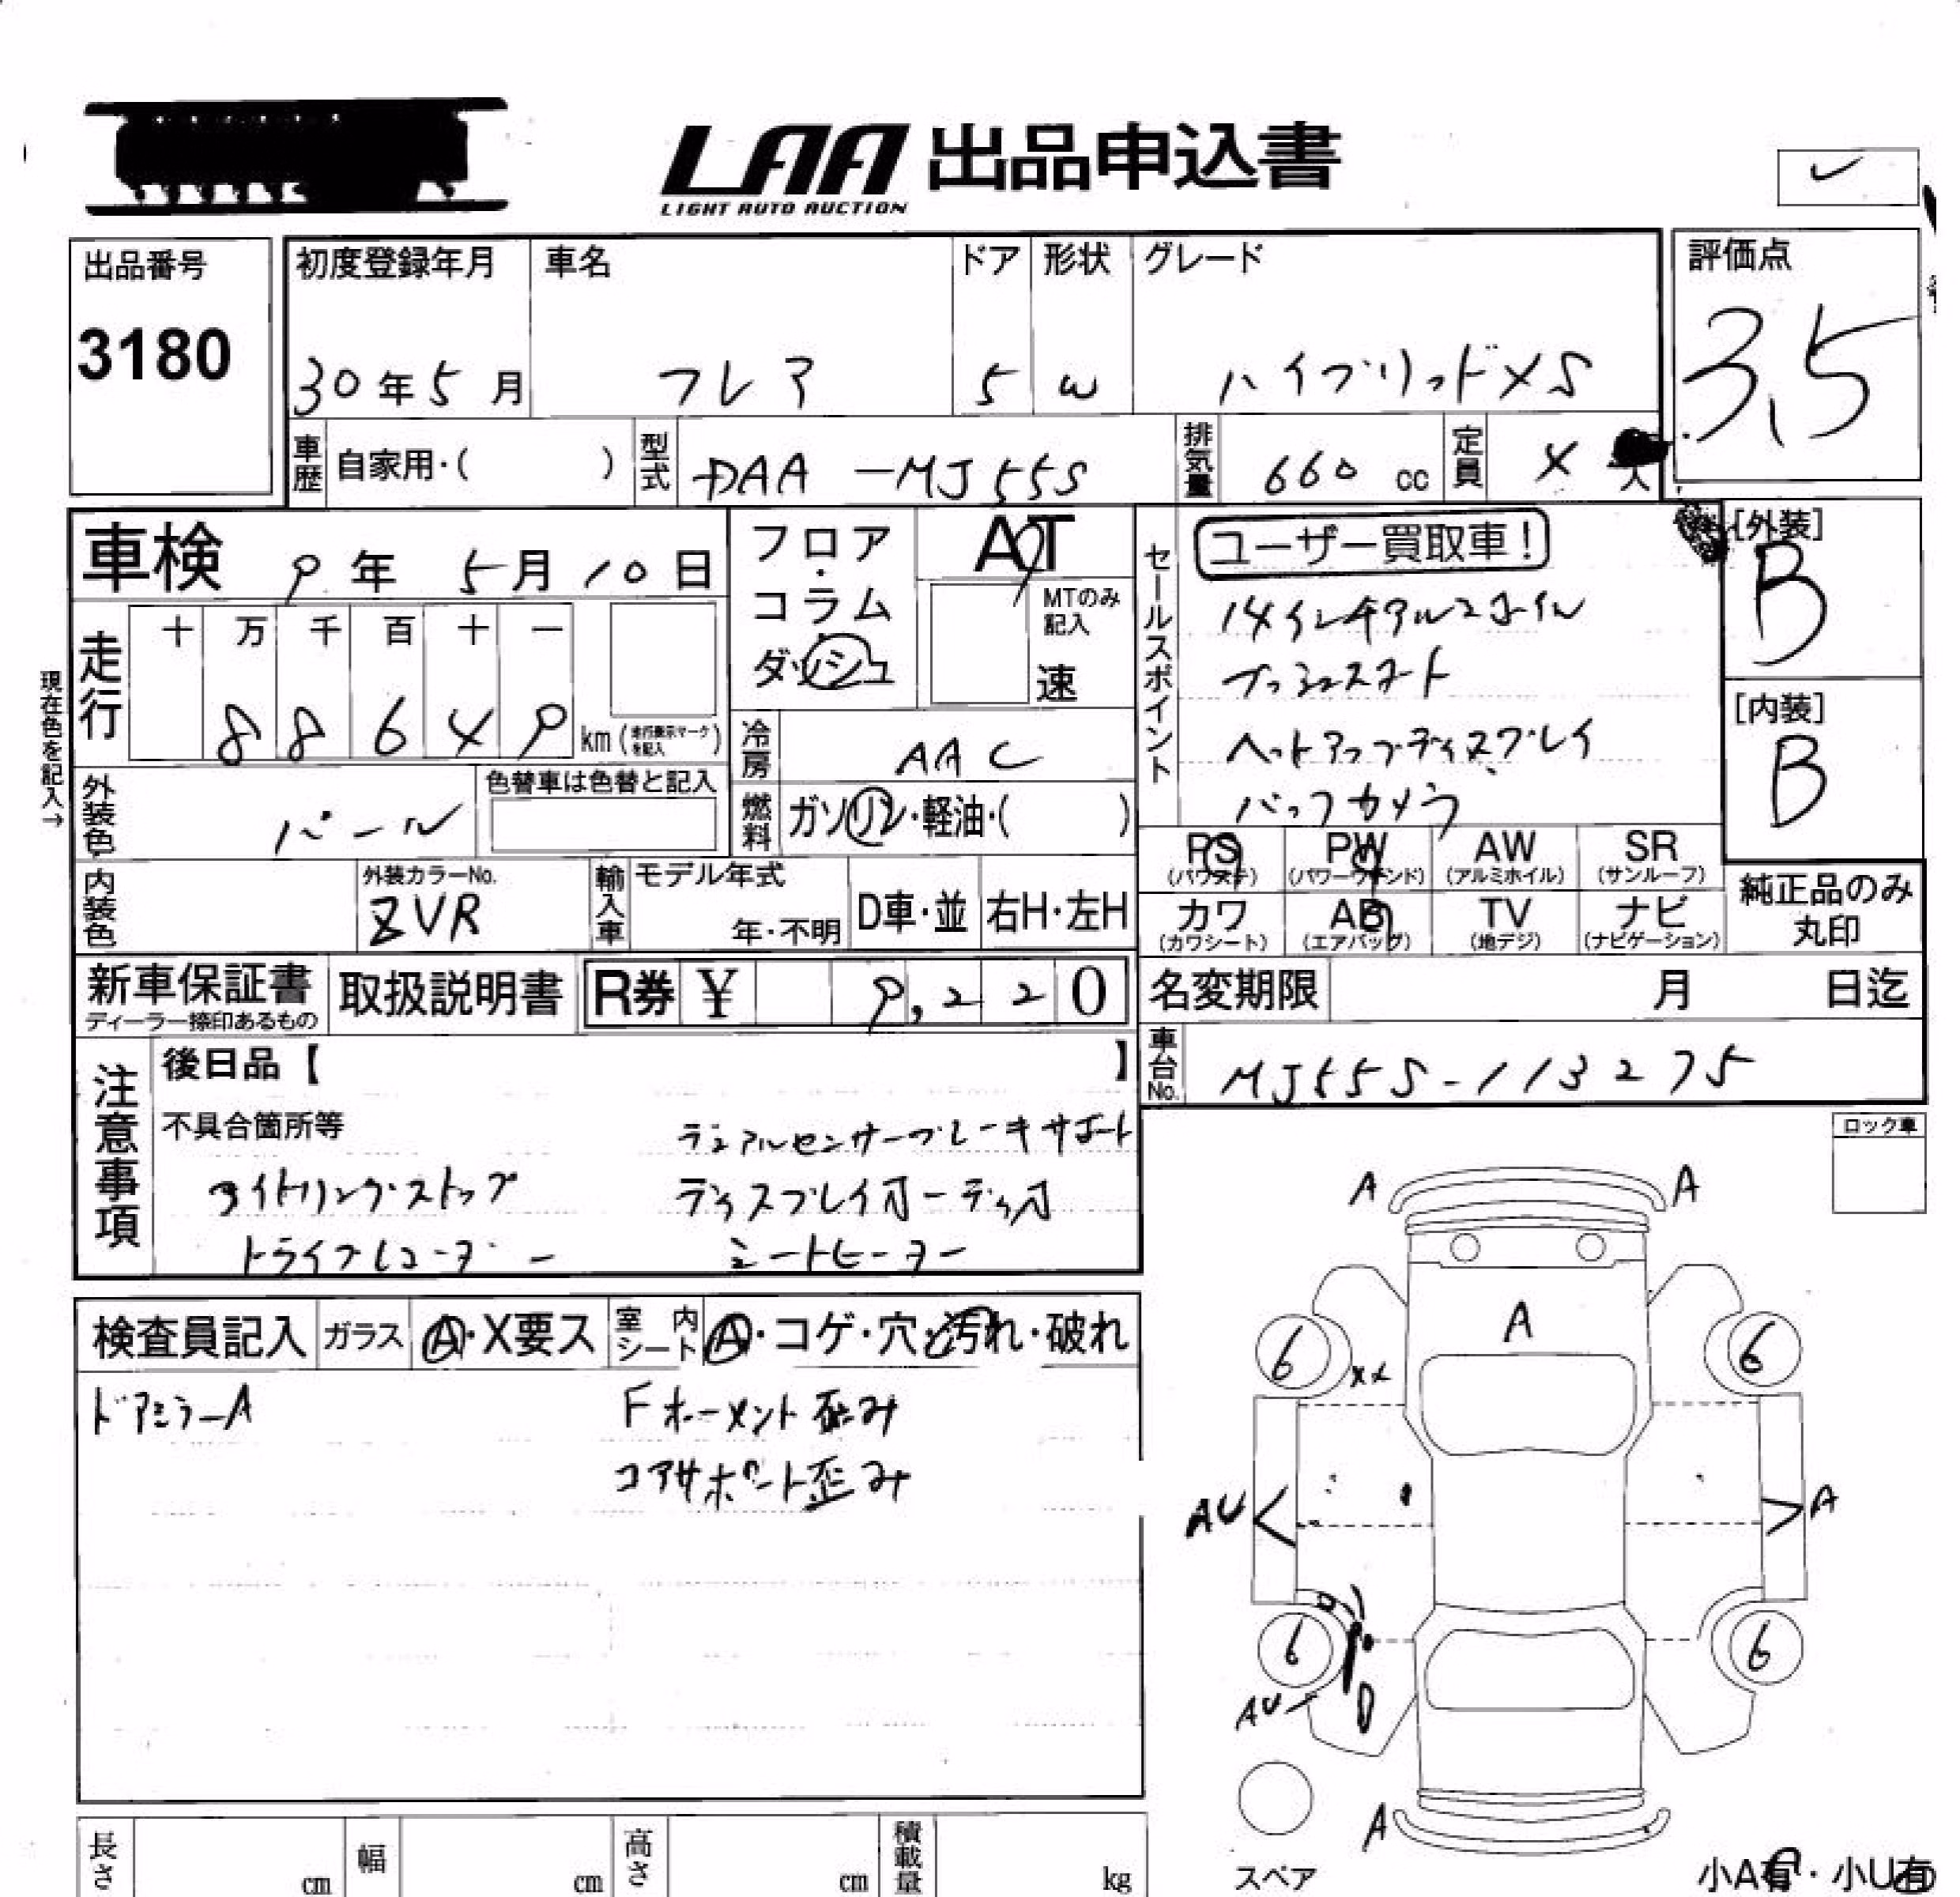 LAA 出品申込書
LIGHT AUTO AUCTION
出品番号
3180
初度登録年月
30年5月
車名
フレア
ドア
5
形状
W
グレード
ハイブリッドXS
評価点
3.5
車歴 自家用・( )
型式 DAA-MJ55S
排気量 660 cc
定員 4 人
車検 9年5月10日
フロア・コラム・ダッシュ
AT
MTのみ記入
速
セールスポイント
ユーザー買取車!
14インチアルミホイル
プッシュスタート
ヘットアップディスプレイ
バックカメラ
[外装]
B
[内装]
B
現在色を記入→
走行
十 万 千 百 十 一
8 8 6 4 9 km (走行表示マークを記入)
冷房 AAC
燃料 ガソリン・軽油・( )
外装色 パール
色替車は色替と記入
内装色
外装カラーNo.
ZVR
輸入車
モデル年式
年・不明
D車・並
右H・左H
PS (パワステ)
PW (パワーウインド)
AW (アルミホイル)
SR (サンルーフ)
カワ (カワシート)
AB (エアバッグ)
TV (地デジ)
ナビ (ナビゲーション)
純正品のみ丸印
新車保証書
ディーラー捺印あるもの
取扱説明書
R券 ¥ 9,220
名変期限 月 日迄
車台No. MJ55S-113275
注意事項
後日品【 】
不具合箇所等
デュアルセンサーブレーキサポート
アイドリングストップ
ディスプレイオーディオ
ドライブレコーダー
シートヒーター
ロック車
検査員記入
ガラス A・X要ス
室内シート A・コゲ・穴・汚れ・破れ
ドアミラーA
Fホーメント歪み
コアサポート歪み
A
A
A
6
6
XX
AU
A
6
6
AU
A
スペア
小A有・小U有
長さ cm
幅 cm
高さ cm
積載量 kg